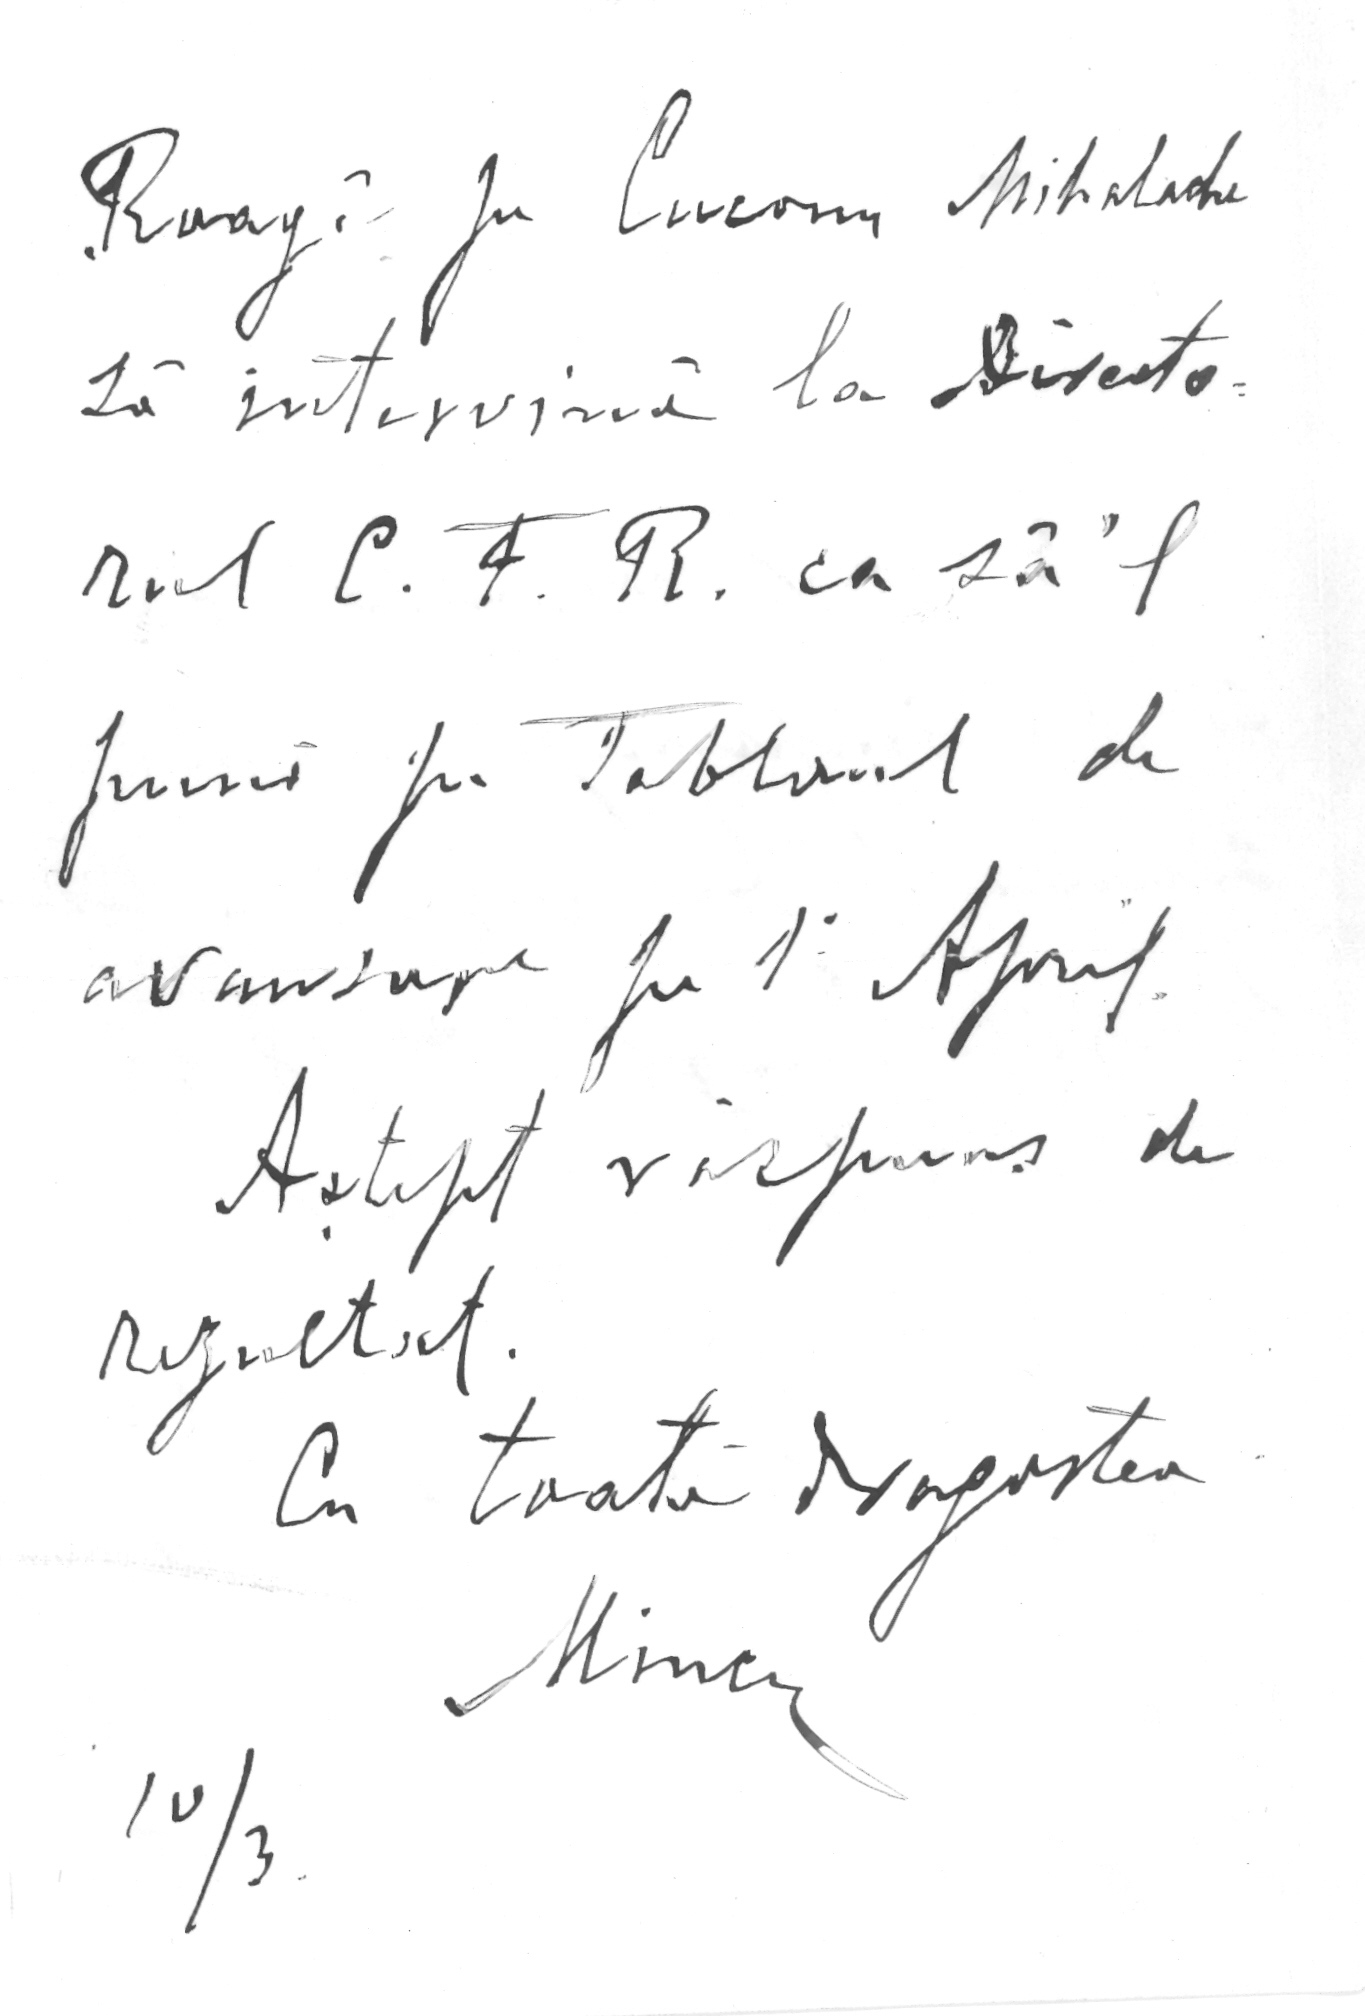 Roagă pe Cuconu Mihalache
să intervină la Directo=
rul C. F. R. ca să'l
pună pe Tabloul de
avansare pe 1 April.
Aștept răspuns de
rezultat.
Cu toată dragostea
Mincu
10/3.